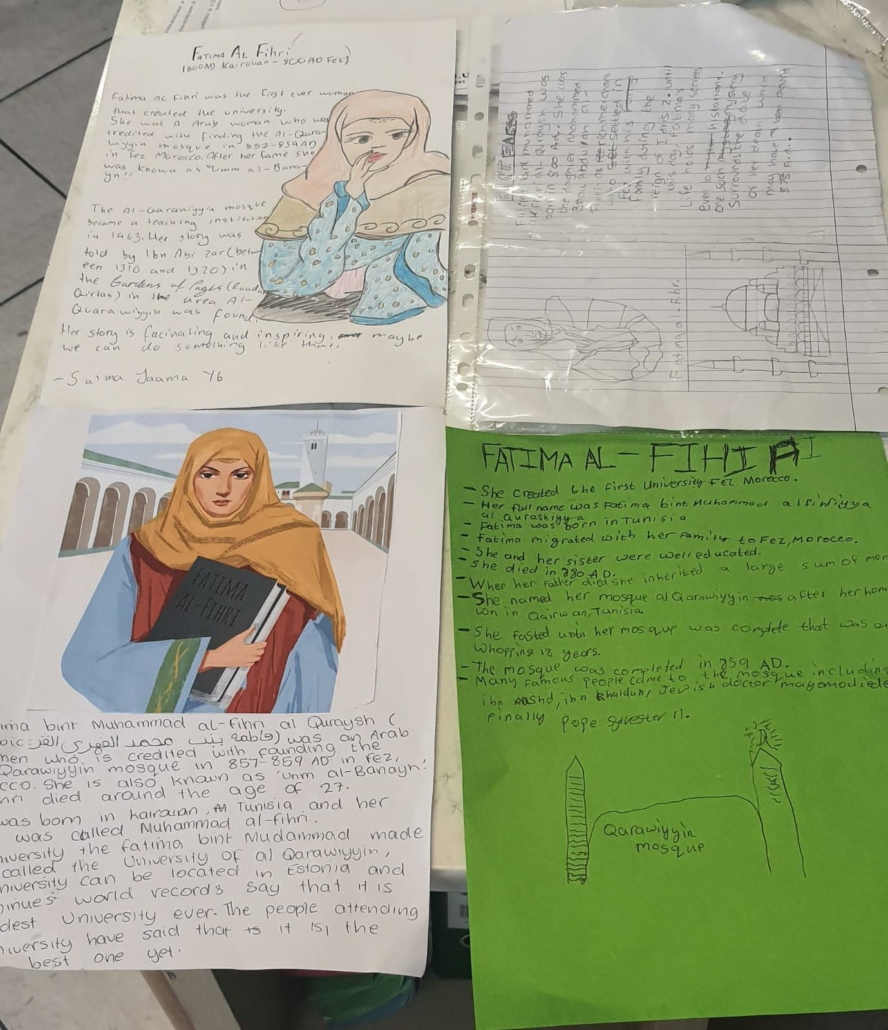 FATIMA AL FIHRI
(800AD Kairouan - 800AD Fez)
Fatima AL Fihri was the first ever woman
that created the university.
She was a Arab woman who was
credited with finding the Al-Qara
wiyyin mosque in 857-859AD
in Fez Morocco. After her fame she
was known as "Umm al-Bana
yn".
The Al-Qarawiyyin mosque
became a teaching institution
in 1963. Her story was
told by Ibn Abi Zar (betw
een 1310 and 1320) in
the Gardens of Pages
Qirtas) in the area Al-
Quarawiyyin was found
Her story is facinating and inspiring, maybe
we can do something like that.
- Salma Jaama Y6
Fatima bint muhammad
al Quraysh was
born in 800 A.D. She was
the daughter
family during the
reign of
this day, Fatima's
life holds many
historians.
one such mystery
surrounds the date
of her death which
may have been
Fatima al-fihri
FATIMA
AL-FIHRI
ima bint Muhammad al-fihri al Quraysh (
was an Arab
men who is credited with founding the
Qarawiyyin mosque in 857-859 AD in Fez,
cco. She is also known as 'umm al-Banayn!
hri died around the age of 27.
was born in kairouan, Tunisia and her
was called Muhammad al-fihri.
niversity the fatima bint Mudammad made
called the University of al Qarawiyyin,
niversity can be located in Estonia and
inues world records say that it is
dest University ever. The people attending
niversity have said that it is, the
best one yet.
FATIMA AL-FIHRI
- She created the first University Fez Morecco.
- Her full name was Fatima bint Muhammad alfihriyya
al Qurashiyya
- Fatima was born in Tunisia
- fatima migrated with her family to Fez, Morocco.
- She and her sister were well educated.
- She died in 880 AD.
- When her Father died she inherited a large sum of mon
- She named her mosque al Qarawiyyin after her hom
in Qairwan, Tunisia
- She fasted until her mosque was complete that was a
whopping 18 years.
- The mosque was completed in 859 AD.
- Many famous people came to the mosque includin
ibn rashd, ibn khaldun, Jewish doctor
finally pope sylvester II.
Qarawiyyin
mosque